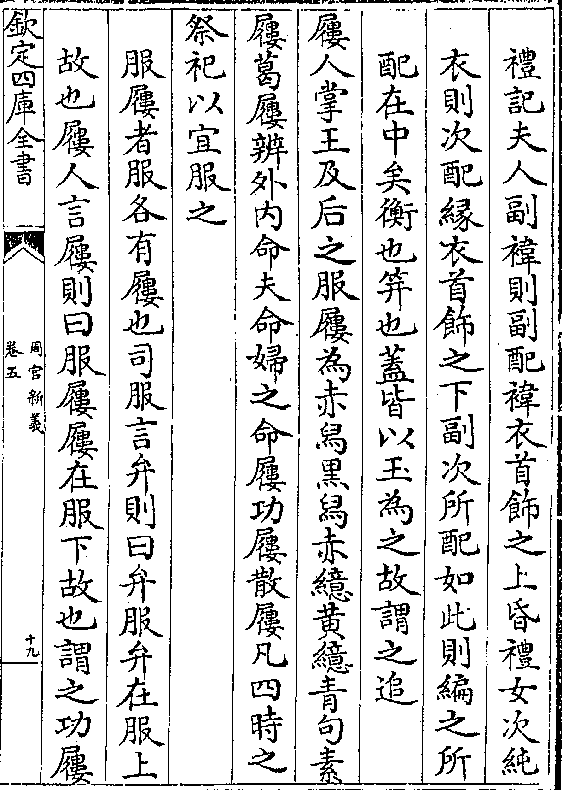 禮記夫人副褘則副配褘衣首飾之上昏禮女次純
衣則次配緣衣首飾之下副次所配如此則編之所
配在中矣衡也笄也蓋皆以玉為之故謂之追
屨人掌王及后之服屨為赤舄黑舄赤繶黄繶青句素
屨葛屨辨外内命夫命婦之命屨功屨散屨凡四時之
祭祀以宜服之
服屨者服各有屨也司服言弁則曰弁服弁在服上
故也屨人言屨則曰服屨屨在服下故也謂之功屨
欽定四庫全書
周官新義
卷五
十九